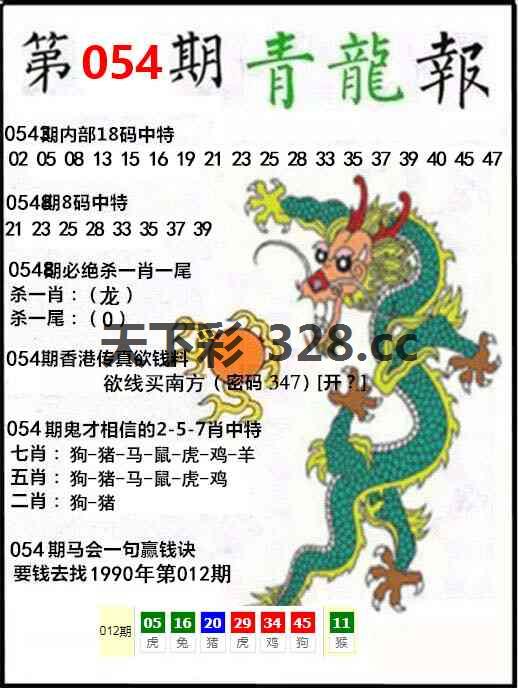 第054期青龍報
0543期内部18码中特
02 05 08 13 15 16 19 21 23 25 28 33 35 37 39 40 45 47
0548期8码中特
21 23 25 28 33 35 37 39
0548期必绝杀一肖一尾
杀一肖：（龙）
杀一尾：（0）
天下彩 328.cc
054期香港传真欲钱料
欲线买南方（密码347）[开？]
054期鬼才相信的2-5-7肖中特
七肖：狗-猪-马-鼠-虎-鸡-羊
五肖：狗-猪-马-鼠-虎-鸡
二肖：狗-猪
054期马会一句赢钱诀
要钱去找1990年第012期
012期 05 16 20 29 34 45 11
虎 兔 猪 虎 鸡 狗 猴